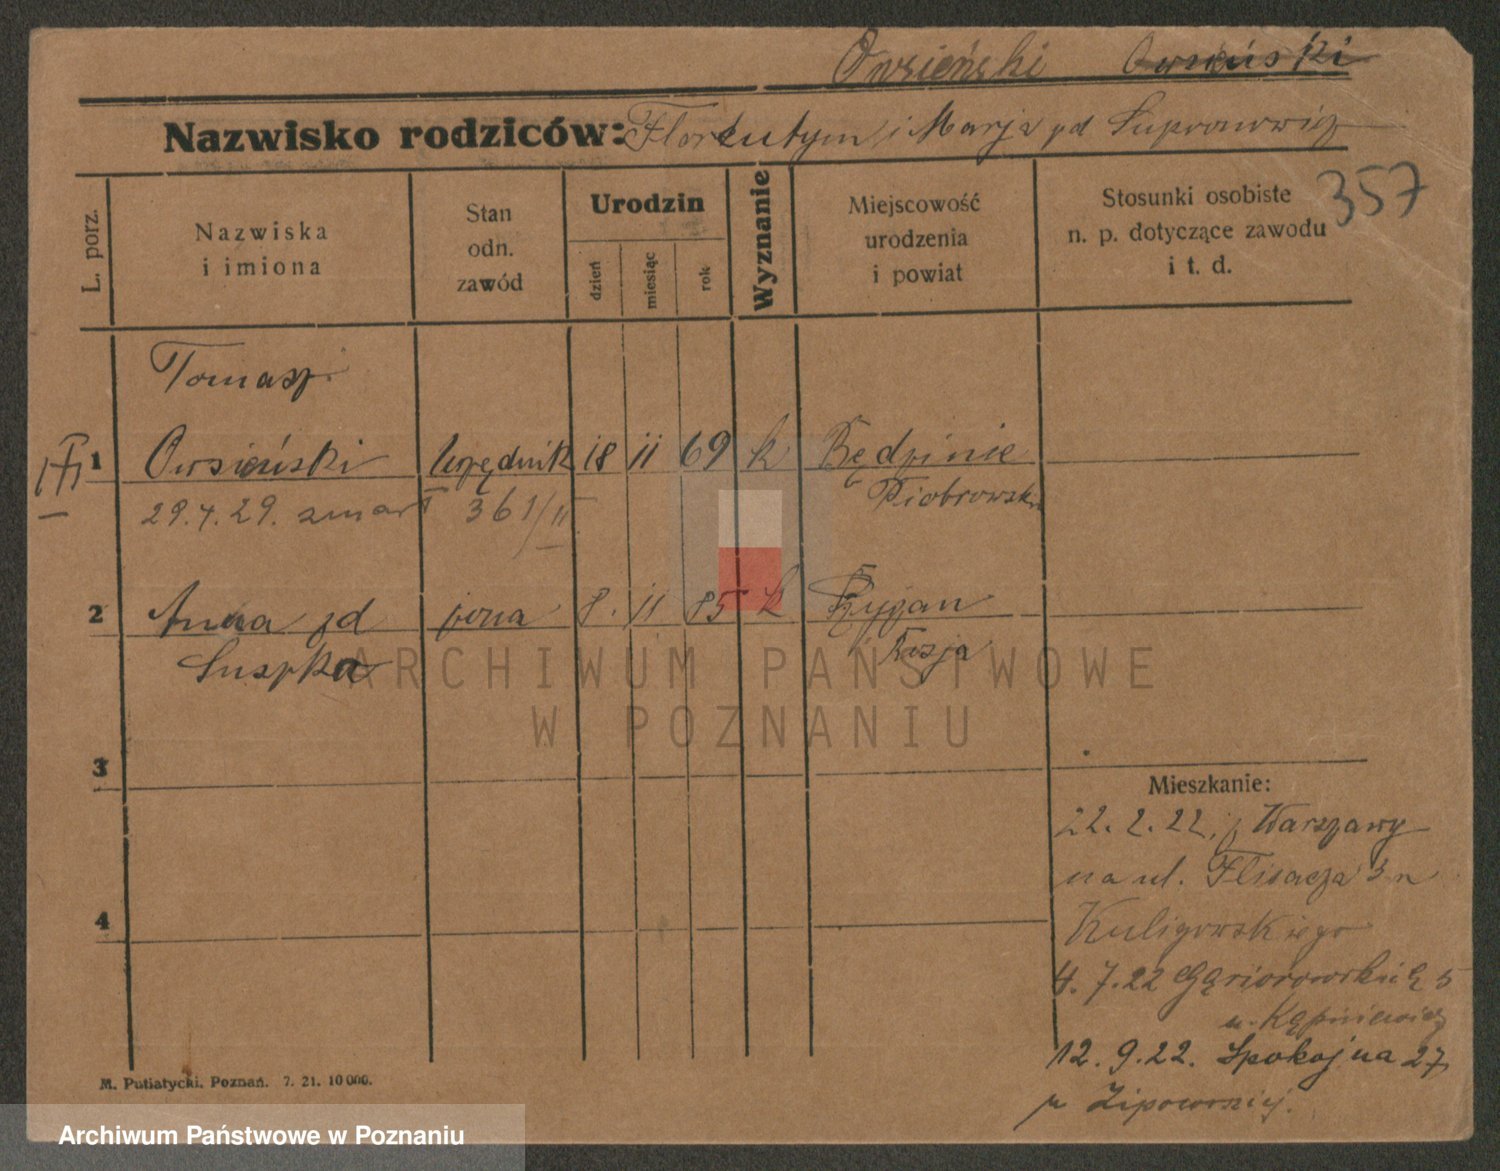 Owsieński Owsiński
Nazwisko rodziców: Florentym i Marja zd Supronowicz
L. porz.
Nazwiska
i imiona
Stan
odn.
zawód
Urodzin
dzień
miesiąc
rok
Wyznanie
Miejscowość
urodzenia
i powiat
Stosunki osobiste
n. p. dotyczące zawodu
i t. d.
357
Tomasz
1 Owsieński Urzędnik 18 11 69 k Będzinie
29.4.29. zmarł 361/II Piotrowski
2 Anna zd żona 8. 11 85 k
Suszka
ARCHIWUM PAŃSTWOWE
W POZNANIU
3
Mieszkanie:
22.2.22. z Warszawy
na ul. Flisacza 3 n
4
Kuligowskiego
4.7.22 Gąsiorowskich 5
12.9.22. Spokojna 27
M. Putiatycki, Poznań. 7. 21. 10000.
Archiwum Państwowe w Poznaniu